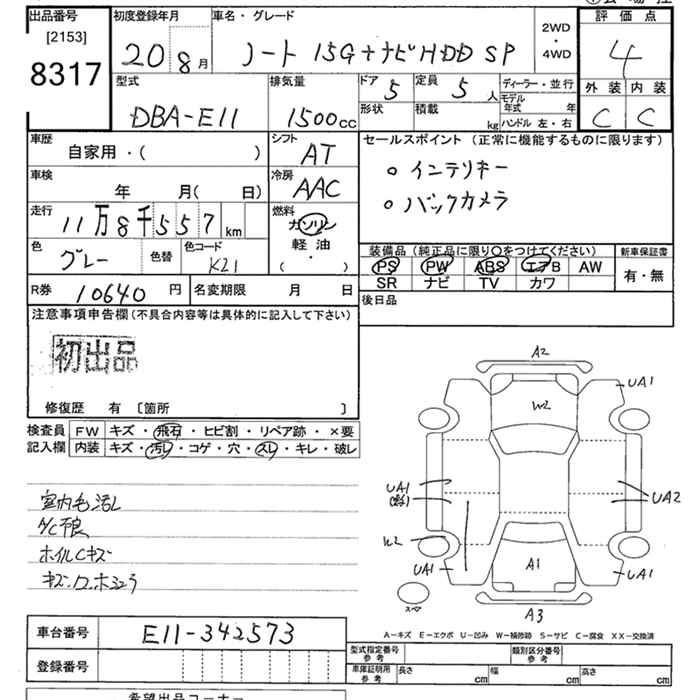 出品番号
[2153]
8317
初度登録年月
20 8 月
車名・グレード
ノート 15G+ナビHDD SP
2WD
・
4WD
評価点
4
外装 内装
C C
型式
DBA-E11
排気量
1500cc
ドア
5
定員
5 人
形状
積載
kg
ディーラー・並行
モデル年式 年
ハンドル 左・右
車歴
自家用・( )
シフト
AT
セールスポイント (正常に機能するものに限ります)
○ インテリキー
○ バックカメラ
車検
年 月( 日)
冷房
AAC
走行
11万8千557km
燃料
ガソリン
軽油
( ・ )
色
グレー
色替
色コード
K21
装備品(純正品に限り○をつけてください)
PS PW ABS エアB AW
SR ナビ TV カワ
新車保証書
有・無
R券
10640 円
名変期限 月 日
後日品
注意事項申告欄(不具合内容等は具体的に記入して下さい)
初出品
修復歴 有 〔箇所 〕
検査員
記入欄
FW キズ・飛石・ヒビ割・リペア跡・×要
内装 キズ・汚レ・コゲ・穴・スレ・キレ・破レ
室内毛汚レ
A/C不良
ホイルCキズ
A2
W2
UA1
UA1
UA2
W2
UA1
A1
UA1
スペア
A3
A-キズ E-エクボ U-凹み W-補修跡 S-サビ C-腐食 XX-交換済
車台番号
E11-342573
登録番号
型式指定番号
参考
類別区分番号
参考
車庫証明用
参考
長さ cm
幅 cm
高さ cm
希望出品コーナー